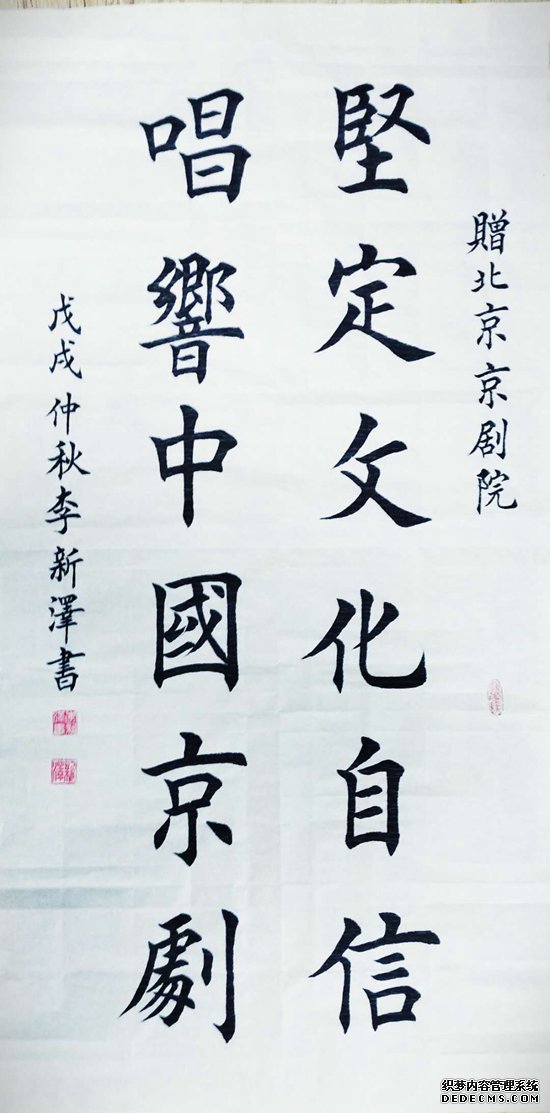 贈北京京剧院
堅定文化自信
唱響中國京劇
戊戌仲秋李新澤書
织梦内容管理系统
DEDECMS.COM